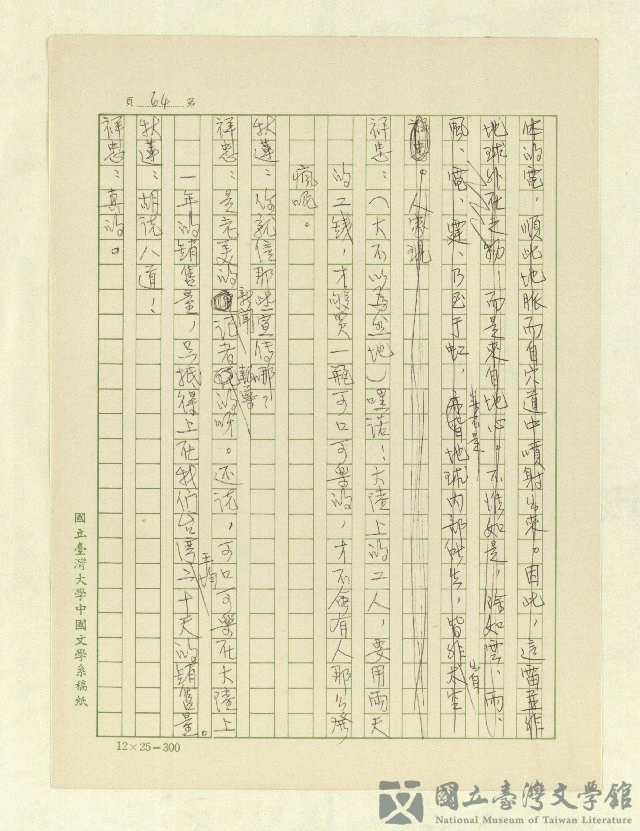 頁 64 第
体的電，順此地脈而自穴道中噴射出來。因此，這雷並非
地球外在之物，而是來自地心。不惟如是，諸如雲、雨、
風、電、霆、乃至于虹，無不是地球內部所生，皆非太空
祥忠。人家說
祥忠：（大不以為然地）嘿諾！大陸上的工人，要用兩天
的工錢，才能買一瓶可口可樂的，才不會有人那么發
瘋呢。
秋蓮：你就信那些宣傳哪？
祥忠：是完美的新聞記者說的呀。还说，可口可樂在大陸上
一年的銷售量，只抵得上在我們台灣二十天的銷售量。
平均
秋蓮：胡说八道！
祥忠：真的。
國立臺灣大學中國文學系稿紙
12×25=300
國立臺灣文學館
National Museum of Taiwan Literature